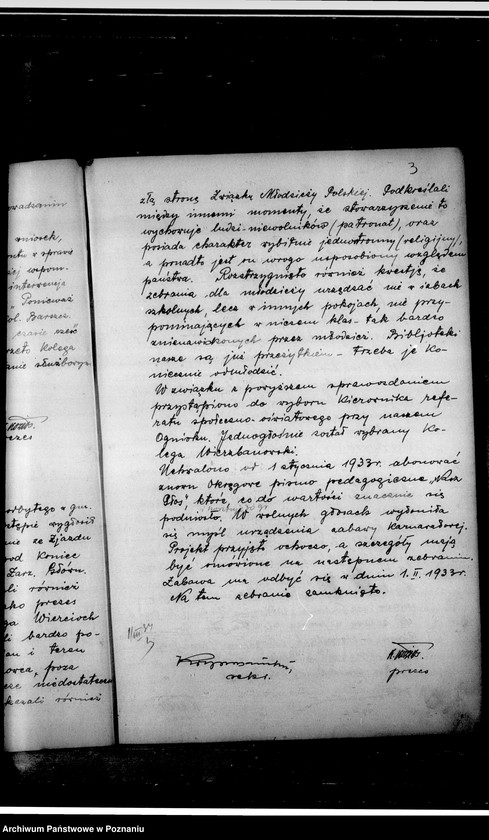 3
złą stronę Związku Młodzieży Polskiej. Podkreślali
między innemi momenty, że stowarzyszenie to
wychowuje ludzi-niewolników (patronat), oraz
posiada charakter wybitnie jednostronny (religijny),
a ponadto jest on wrogo usposobiony względem
państwa. Rozstrzygnięto również kwestję, że
zebrania dla młodzieży urządzać nie w izbach
szkolnych, lecz w innych pokojach, nie przy-
pominających w niczem klas - tak bardzo
znienawidzonych przez młodzież. Bibljoteki
nasze są już przeżytkiem - trzeba je ko-
niecznie odmłodzić.
W związku z powyższem sprawozdaniem
przystąpiono do wyboru Kierownika refe-
ratu społeczno-oświatowego przy naszem
Ognisku. Jednogłośnie został wybrany ko-
lega Wierzbanowski.
Uchwalono od 1 stycznia 1933 r. abonować
znowu Okręgowe pismo pedagogiczne „Nasz
Głos", które co do wartości znacznie się
podniosło. W wolnych głosach wyłoniła
się myśl urządzenia zabawy kameralnej.
Projekt przyjęto ochoczo, a szczegóły mają
być omówione na następnem zebraniu.
Zabawa ma odbyć się w dniu 1. II. 1933 r.
Na tem zebranie zamknięto.
sekr.
prezes
wniosek,
interwencja
Ponieważ
kolega
prezes
odbytego w gm.
ze Zjazdu
pod koniec
Zarz. Główn.
li również
ako prezes
ga Wiercioch
li bardzo po-
an i teren
poza
niedostatecz
kazali również
Archiwum Państwowe w Poznaniu